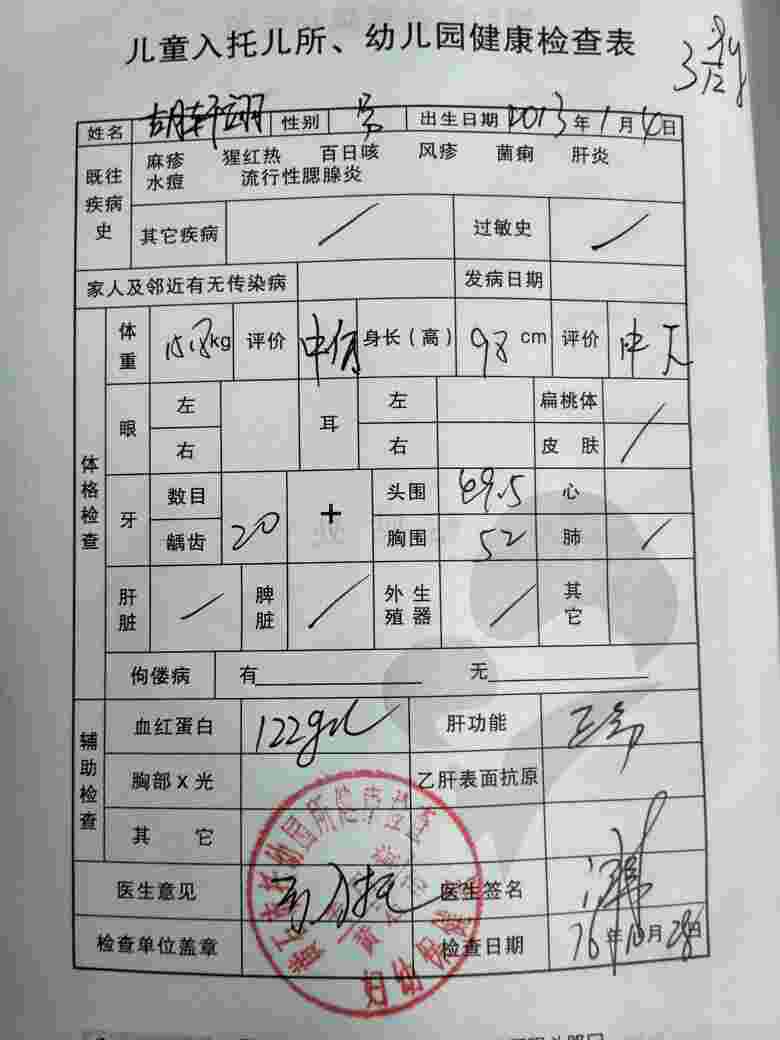 儿童入托儿所、幼儿园健康检查表
姓名 胡轩翊 性别 男 出生日期 2013年1月4日
既往疾病史 麻疹 猩红热 百日咳 风疹 菌痢 肝炎
水痘 流行性腮腺炎
其它疾病 / 过敏史 /
家人及邻近有无传染病 发病日期
体格检查 体重 kg 评价 身长(高) 98 cm 评价
眼 左 耳 左 扁桃体
右 右 皮肤 /
牙 数目 20 + 头围 49.5 心
龋齿 胸围 52 肺 /
肝脏 / 脾脏 / 外生殖器 / 其它
佝偻病 有 无
辅助检查 血红蛋白 122g/L 肝功能 正常
胸部X光 乙肝表面抗原
其它
医生意见 可入托 医生签名
检查单位盖章 检查日期 16年10月28日